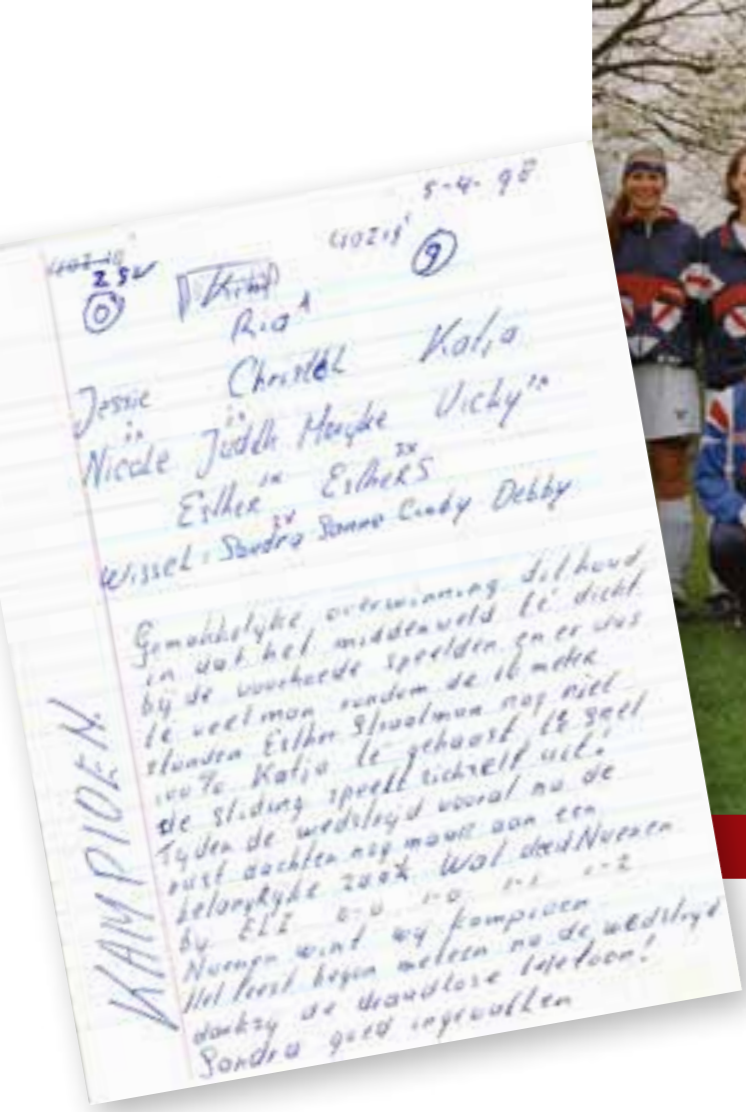 5-4-98
ZSV
0
9
Ria
Jessie Christel Katja
1x 1x 1x
Nicole Judith Mayke Vicky
1x
Esther Esther S
Wissel: Sandra Sanne Cindy Debby
Gemakkelijke overwinning dit houd
in dat het middenveld te dicht
bij de voorhoede speelden en er was
te veel man rondom de 16 meter
stonden Esther Straalman nog niet
100% Katja te gehaast te snel
de sliding speelt zichzelf uit!
Tijden de wedstrijd vooral na de
rust dachten nog maar aan een
belangrijke zaak Wat deed Nuenen
by ELI 0-0 1-0 1-1 1-2
Nuenen wint wij kampioen
Het feest begon meteen na de wedstrijd
dankzij de draadloze telefoon!
Sandra goed ingevallen
KAMPIOEN